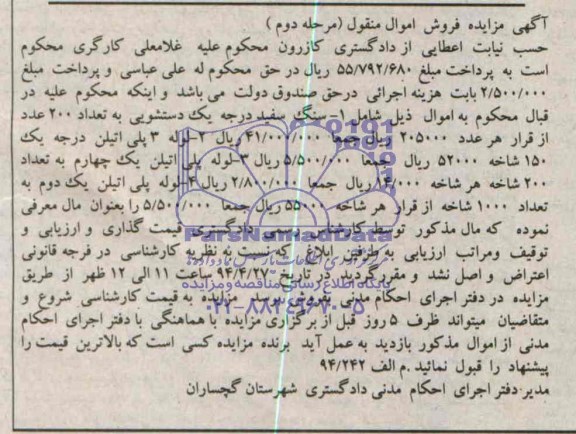 آگهی مزایده فروش اموال منقول (مرحله دوم )
حسب نیابت اعطایی از دادگستری کازرون محکوم علیه غلامعلی کارگری محکوم
است به پرداخت مبلغ ۵۵/۷۹۲/۶۸۰ ریال در حق محکوم له علی عباسی و پرداخت مبلغ
۲/۵۰۰/۰۰۰ بابت هزینه اجرائی درحق صندوق دولت می باشد و اینکه محکوم علیه در
قبال محکوم به اموال ذیل شامل ۱-سنگ سفید درجه یک دستشویی به تعداد ۲۰۰ عدد
از قرار هر عدد ۲۰۵۰۰۰ ریال جمعا ۴۱/۰۰۰/۰۰۰ ریال ۲-لوله ۳ پلی اتیلن درجه یک
۱۵۰ شاخه ۵۲۰۰۰ ریال جمعا ۵/۵۰۰/۰۰۰ ریال ۳-لوله پلی اتیلن یک چهارم به تعداد
۲۰۰ شاخه هر شاخه ۱۴/۰۰۰ ریال جمعا ۲/۸۰۰/۰۰۰ ریال ۴-لوله پلی اتیلن یک دوم به
تعداد ۱۰۰۰ شاخه از قرار هر شاخه ۵۵۰۰۰ ریال جمعا ۵/۵۰۰/۰۰۰ را بعنوان مال معرفی
نموده که مال مذکور توسط کارشناس رسمی دادگستری قیمت گذاری و ارزیابی و
توقیف ومراتب ارزیابی به طرفین ابلاغ که نسبت به نظریه کارشناسی در فرجه قانونی
اعتراض و اصل نشد و مقررگردید در تاریخ ۹۴/۴/۲۷ ساعت ۱۱ الی ۱۲ ظهر از طریق
مزایده در دفتر اجرای احکام مدنی بفروش برسد مزایده به قیمت کارشناسی شروع و
متقاضیان میتواند ظرف ۵ روز قبل از برگزاری مزایده با هماهنگی با دفتر اجرای احکام
مدنی از اموال مذکور بازدید به عمل آید برنده مزایده کسی است که بالاترین قیمت را
پیشنهاد را قبول نمائید .م الف ۹۴/۲۴۲
مدیر دفتر اجرای احکام مدنی دادگستری شهرستان گچساران
ParsNamadData
پایگاه اطلاع رسانی مناقصه و مزایده
۰۲۱-۸۸۳۴۹۶۷۰-۵